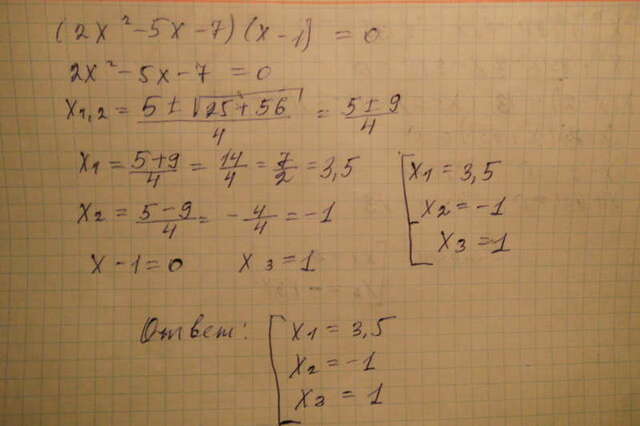 (2x²-5x-7)(x-1) = 0
2x²-5x-7 = 0
x1,2 = (5±√(25+56))/4 = (5±9)/4
x1 = (5+9)/4 = 14/4 = 7/2 = 3,5
x2 = (5-9)/4 = -4/4 = -1
x-1=0 x3=1
[x1=3,5
x2=-1
x3=1
Ответ: [x1=3,5
x2=-1
x3=1